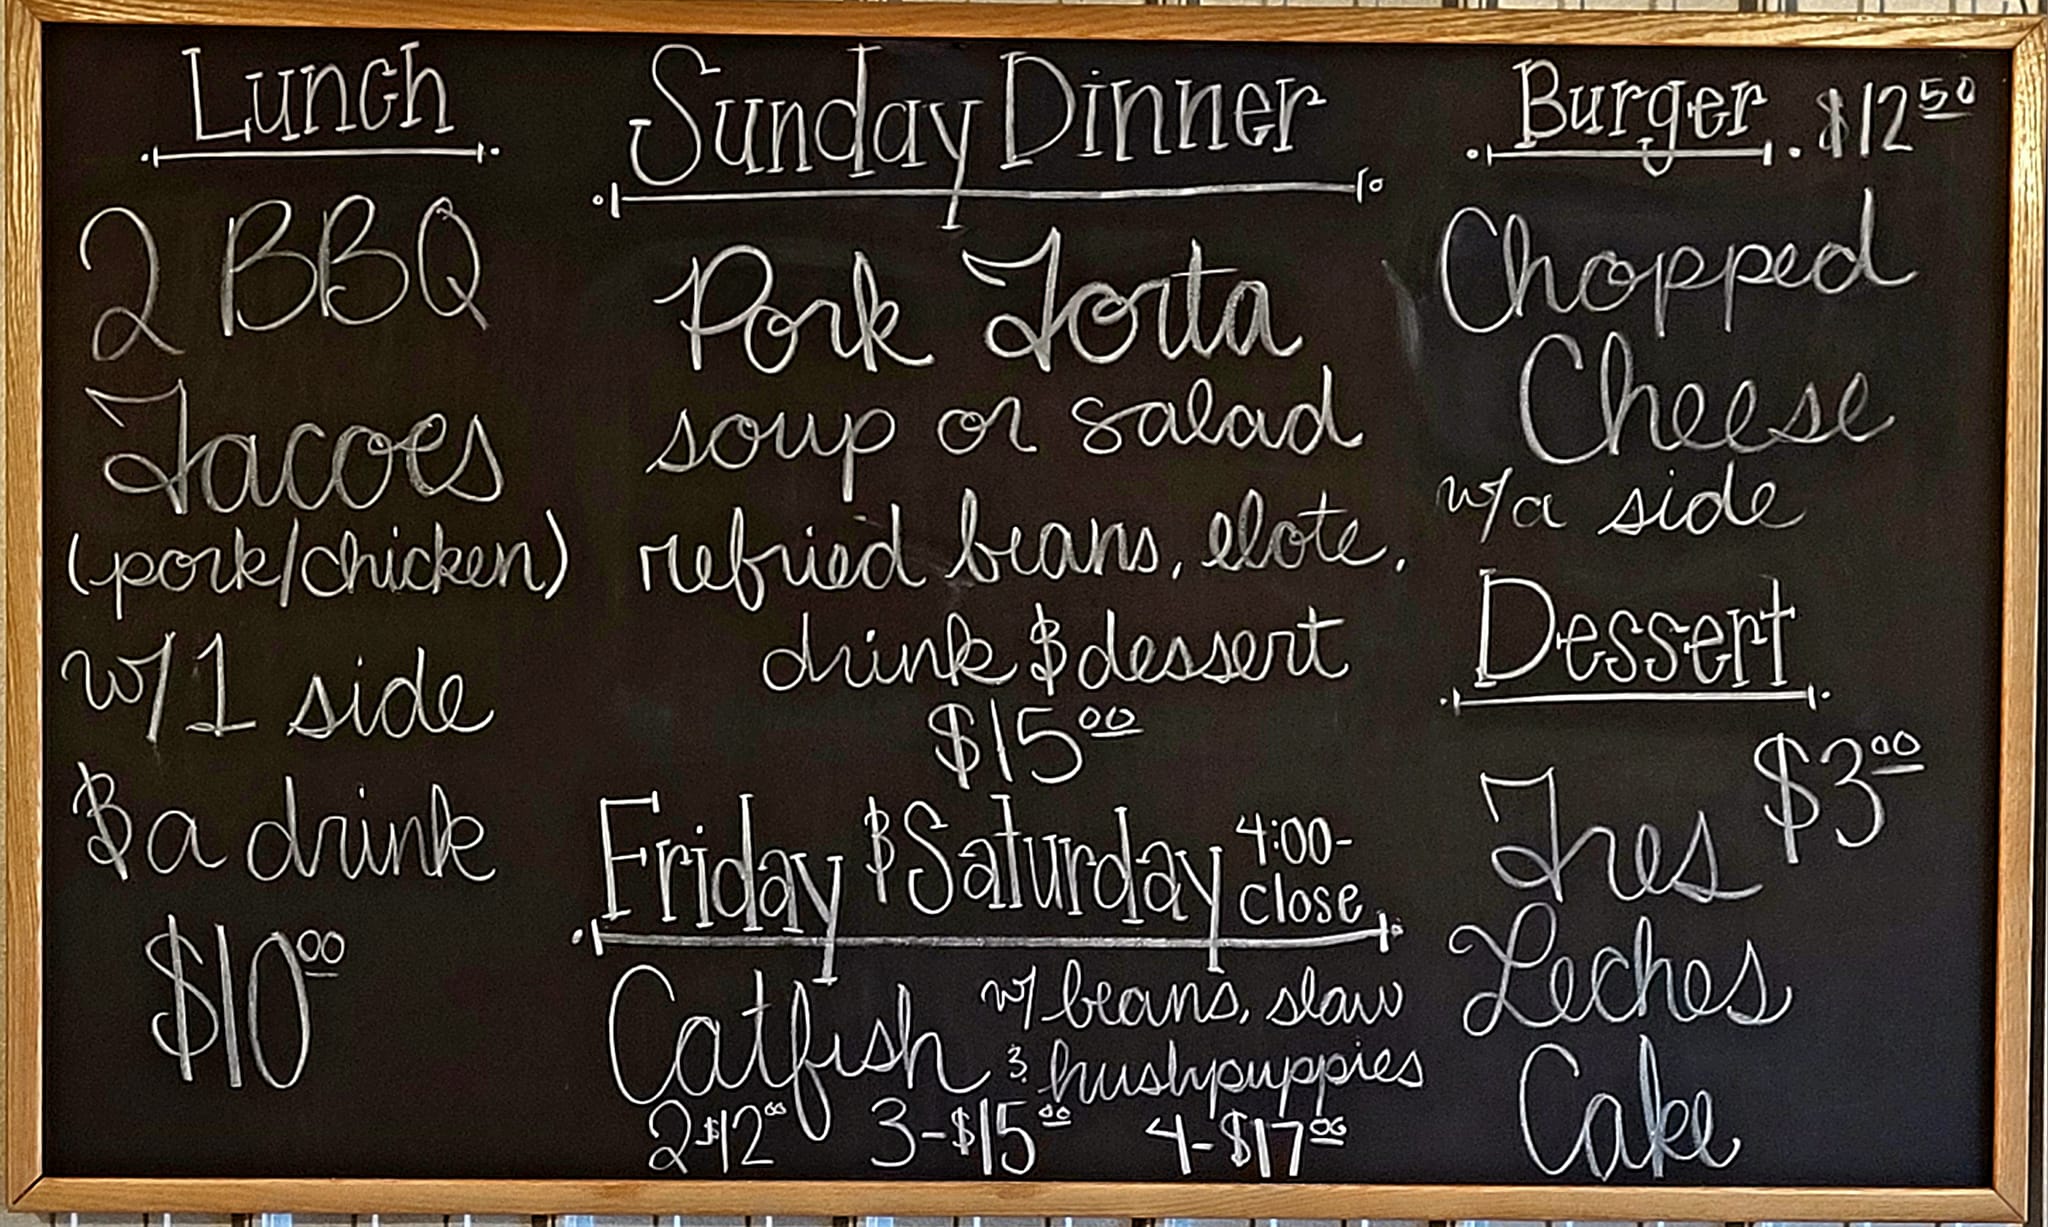 Lunch
2 BBQ
Tacoes
(pork/chicken)
w/1 side
& a drink
$10.00
Sunday Dinner
Pork Torta
soup or salad
refried beans, elote,
drink & dessert
$15.00
Friday & Saturday 4:00-
close
Catfish w/ beans, slaw
& hushpuppies
2-$12.00 3-$15.00 4-$17.00
Burger $12.50
Chopped
Cheese
w/a side
Dessert
$3.00
Tres
Leches
Cake